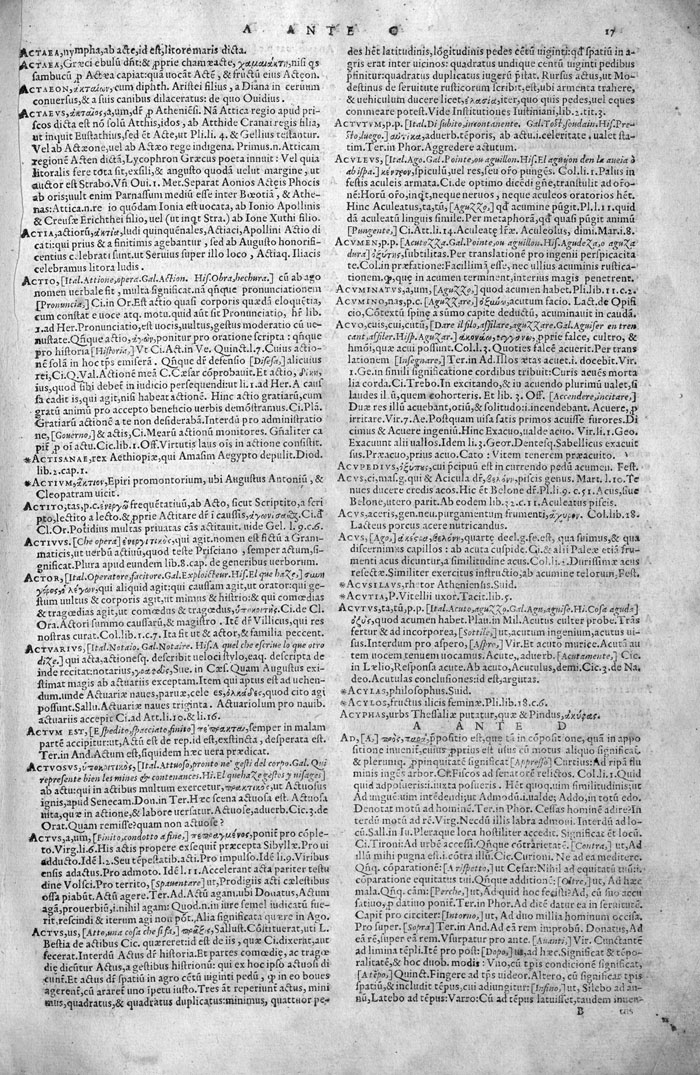 A ANTE C
17
ACTAEA, nympha, ab acte, id est, litore maris dicta.
ACTAEA, Græci ebulū dn̄t: & ꝓprie chamæacte, χαμαιάκτη, nisi qs
sambucū ꝑ Actæa capiat: quā uocāt Actē, & fructū eius Acteon.
ACTAEON, ἀκταίων, cum diphth. Aristei filius, a Diana in ceruum
conuersus, & a suis canibus dilaceratus: de quo Ouidius.
ACTAEVS, ἀκταῖος, a, um, dr̄ p Atheniēsi. Nā Attica regio apud pri-
scos dicta est nō solū Atthis, idos, ab Atthide Cranai regis filia,
ut inquit Eustathius, sed ēt Acte, ut Pli. li. 4. & Gellius testantur.
Vel ab Actæone, uel ab Actæo rege indigena. Primus. n. Atticam
regionē Acten dictā, Lycophron Græcus poeta innuit: Vel quia
litoralis fere tota sit, exsili, & angusto quodā uelut margine, ut
auctor est Strabo. Vn̄ Oui. 1. Met. Separat Aonios Actęis Phocis
ab oris; uult enim Parnassum mediū esse inter Bœotiā, & Athe-
nas: Attica. n. re io quondam Ionia est uocata, ab Ionio Apollinis
& Creusæ Erichthei filio, uel (ut inqt Stra.) ab Ione Xuthi filio.
ACTIA, actiorū, ἄκτια, ludi quinquēnales, Actiaci, Apollini Actio di-
cati: qui prius & a finitimis agebantur, sed ab Augusto honorifi-
centius celebrati sunt, ut Seruius super illo loco, Actiaq. Iliacis
celebramus litora ludis.
ACTIO, [Ital. Attione, opera. Gal. Action. His. Obra, hechura.] cū ab ago
nomen uerbale sit, multa significat. nā qn̄que pronunciationem
[Pronuncia,] Ci. in Or. Est actio quasi corporis quædā eloquētia,
cum constat e uoce atq. motu. quid aūt sit Pronunciatio, hr̄ lib.
1. ad Her. Pronunciatio, est uocis, uultus, gestus moderatio cū ue-
nustate. Qn̄que actio, ἀγών, ponitur pro oratione scripta: qn̄que
pro historia [Historia,] Vt Ci. Act. in Ve. Quinct. l. 7. Cuius actio-
nē solā in hoc tp̄s emiserā. Qn̄que dr̄ defensio [Difesa,] alicuius
rei, Ci. Q. Val. Actionē meā C. Cæsar cōprobauit. Et actio,
quod sibi debet in iudicio persequendi: ut li. 1. ad Her. A causa
sa cadit is, qui agit, nisi habeat actionē. Hinc actio gratiarū, cum
gratū animū pro accepto beneficio uerbis demōstramus. Ci. Plā.
Gratiarū actionē a te non desiderabā. Interdū pro administratio
ne, [Gouerno,] & actis, Ci. Mearū actionū monitores. Gn̄aliter ca
pit̄ p oī actu. Cic. lib. 1. Off. Virtutis laus oīs in actione consistit.
*ACTISANAE, rex Aethiopiæ, qui Amasim Aegypto depulit. Diod.
lib. 2. cap. 1.
*ACTIVM, ἄκτιον, Epiri promontorium, ubi Augustus Antoniū, &
Cleopatram uicit.
ACTITO, tas, p. c. frequētatiuū, ab Acto, sicut Scriptito, a scri
pto, lectito a lecto, & ꝓprie Actitare dr̄ i caussis, Ci. ad
Cl. Or. Potidius multas priuatas cās actitauit. uide Gel. l. 9. c. 6.
ACTIVVS, [Che opera] ἐνεργητικός, qui agit. nomen est fictū a Gram-
maticis, ut uerbū actiuū, quod teste Prisciano, semper actum, si-
gnificat. Plura apud eundem lib. 8. cap. de generibus uerborum.
ACTOR, [Ital. Operatore, facitore. Gal. Exploicteur. His. El que haze,]
qui aliquid agit: qui caussam agit, ut orator: qui ge-
stum uultus & corporis agit, ut mimus & histrio: & qui comœdias
& tragœdias agit, ut comœdus & tragœdus, ὑποκριτής. Ci. de Cl.
Ora. Actori summo caussarū, & magistro. Itē dr̄ Villicus, qui res
nostras curat. Col. lib. 1. c. 7. Ita fit ut & actor, & familia peccent.
ACTVARIVS, [Ital. Notaio. Gal. Notaire. His. A quel che escriue lo que otro
dize,] qui acta, actionesq. describit ueloci stylo, eaq. descripta de
inde recitat: notarius, γραφεύς, Sue. in Cæs. Quam Augustus exi-
stimat magis ab actuariis exceptam. Item qui aptus est ad uehen-
dum. unde Actuariæ naues, paruæ, cele es, quod cito agi
possunt. Sallu. Actuariæ naues triginta. Actuariolum pro nauib.
actuariis accepit Ci. ad Att. li. 10. & li. 16.
ACTVM EST, [E spedito, spacciato, finito] πέπρακται, semper in malam
partē accipitur: ut, Actū est de rep. id est, exstincta, desperata est.
Ter. in And. Actum est, siquidem hæc uera prædicat.
ACTVOSVS, ὑποκριτικός, [Ital. Attuoso, pronto ne' gesti del corpo. Gal. Qui
represente bien les mines & contenances. Hi. El que haze gestos y uisages]
ab actu: qui in actibus multum exercetur, πρακτικός, ut Actuosus
ignis, apud Senecam. Don. in Ter. Hæc scena actuosa est. Actuosa
uita, quæ in actione, & labore uersatur. Actuose, aduerb. Cic. 3. de
Orat. Quam remisse? quam non actuose?
ACTVS, a, um, [Finito, condotto a fine,] πεπραγμένος, ponit̄ pro cōple-
to. Virg. li. 6. His actis propere exsequit̄ præcepta Sibyllæ. Pro ui
adducto. Idē l. 2. Seu tēpestatib. acti. Pro impulso. Idē li. 9. Viribus
ensis adactus. Pro admoto. Idē li. 11. Accelerant acta pariter testu
dine Volsci. Pro territo, [Spauentare] ut, Prodigiis acti cælestibus
ossa piabūt. Actū agere. Ter. An. Actū agam. ubi Donatus, Actum
agā, prouerbiū, i. nihil agam: Quod. n. in iure semel iudicatū fue-
rit, rescindi & iterum agi non pōt. Alia significata quære in Ago.
ACTVS, us, [Atto, una cosa che si fa,] πρᾶξις, Sallust. Cōstituerat, uti L.
Bestia de actibus Cic. quæreret: id est de iis, quæ Ci. dixerat, aut
fecerat. Interdū Actus dr̄ historia. Et partes comœdiæ, ac tragœ
diæ dicūtur Actus, a gestibus histrionū: qui ex hoc ipso actuosi di
cunt̄. Et actus dr̄ spatiū in agro cētū uiginti pedū, q in eo boues
agerent̄, cū araret uno īpetu iusto. Tres āt reperiunt̄ actus, mini
mus, quadratus, & quadratus duplicatus: minimus, quattuor pe-
des hēt latitudinis, lōgitudinis pedes cētū uiginti: qd̄ spatiū in a-
gris erat inter uicinos: quadratus undique centū uiginti pedibus
finitur: quadratus duplicatus iugerū p̄itat. Rursus actus, ut Mo-
destinus de seruitute rusticorum scribit, est, ubi armenta trahere,
& uehiculum ducere licet, iter, quo quis pedes, uel eques
commeare potest. Vide Institutiones Iustiniani, lib. 2. tit. 3.
ACTVTVM, p. p. [Ital. Di subito, incontanente. Gal. Tost, soudain. His. Pre-
sto, luego,] αὐτίκα, aduerb. tēporis, ab actu. i. celeritate, ualet sta-
tim. Ter. in Phor. Aggredere actutum.
ACVLEVS, [Ital. Ago. Gal. Pointe, ou aguillon. His. El aguijon den la aueia ò
abispa,] κέντρον, spiculū, uel res, seu ofr̄o pungēs. Col. li. 1. Palus in
festis aculeis armata. Ci. de optimo dicēdi gn̄e, transtulit ad ofr̄o-
nē: Horū ofr̄o, inqt̄, neque neruos, neque aculeos oratorios hēt.
Hinc Aculeatus, ta, tū, [Aguzzo,] qd̄ acumine pūgit. Pli. l. 11. quid
dā aculeatū linguis similē. Per metaphorā, qd̄ quasi pugit animū
[Pungente,] Ci. Att. li. 14. Aculeatę lræ. Aculeolus, dimi. Mar. l. 8.
ACVMEN, p. p. [Acutezza. Gal. Pointe, ou aguillon. His. Agudeza, o aguza
dura] ὀξύτης, subtilitas. Per translationē pro ingenii perspicacita
te. Col. in præfatione: Facillima esse, nec ullius acuminis rustica-
tionem. q, que in acumen terminent̄, interius magis penetrent.
ACVMINATVS, a, um, [Aguzzo,] quod acumen habet. Pli. lib. 11. c. 2.
ACVMINO, nas, p. c. [Aguzzare,] ὀξύνω, acutum facio. Lact. de Opifi-
cio, Cōtextū spinę a sūmo capite deductū, acuminauit in caudā.
ACVO, cuis, cui, cutū, [Dare il filo, affilare, aguzzare. Gal. Aguiser en tren
cant, affiler. Hisp. Aguzar.] ꝓprie falce, cultro, &
hmōi, quæ acui possunt. Col. l. 7. Quotiēs falcē acuerit. Per trans
lationem [Insegnare,] Ter. in Ad. Illos ætas acuet. i. docebit. Vir.
1. Ge. in simili significatione cordibus tribuit: Curis acuēs morta
lia corda. Ci. Trebo. In excitando, & in acuendo plurimū ualet, si
laudes illū, quem cohorteris. Et lib. 3. Off. [Accendere, incitare,]
Duæ res illū acuebant, otiū, & solitudo: i. incendebant. Acuere, p
irritare. Vir. 7. Ae. Postquam uisa satis primos acuisse furores. Di
cimus & Acuere ingeniū. Hinc Exacuo, ualde acuo. Vir. li. 1. Geo.
Exacuunt alii uallos. Idem li. 3. Geor. Dentesq. Sabellicus exacuit
sus. Præacuo, prius acuo. Cato: Vitem tenerem præacuito.
ACVPEDIVS, ὀξύπους, cui p̄cipuū est in currendo pedū acumen. Fest.
ACVS, ci, mas. g. qui & Acicula dr̄. βελόνη, piscis genus. Mart. l. 10. Te
nues ducere credis acos. Hic ēt Belone dr̄. Pli. l. 9. c. 51. Acus, siue
Belone, utero parit. Ab eodem lib. 32. c. 11. Aculeatus piscis.
ACVS, aceris, gen. neu. purgamentum frumenti, ἄχυρον. Col. lib. 18.
Lacteus porcus acere nutricandus.
ACVS, [Ago,] quarte decl. g. fe. est, qua suimus, & qua
discernimus capillos: ab acuta cuspide. Ci. & alii Paleæ etiā fru-
menti acus dicuntur, a similitudine acus. Col. li. 2. Durissimæ acus
resectæ. Similiter exercitus instructio, ab acumine telorum, Fest.
*ACVSILAVS, rhetor Atheniensis. Suid.
*ACVTIA, P. Vitellii uxor. Tacit. lib. 5.
ACVTVS, ta, tū, p. p. [Ital. Acuto, aguzzo. Gal. Agu, aguise. Hi. Cosa aguda]
ὀξύς, quod acumen habet. Plau. in Mil. Acutus culter probe. Trās
fertur & ad incorporea, [Sottile,] ut, acutum ingenium, acutus ui-
sus. Interdum pro aspero, [Aspro,] Vir. Et acuto murice. Acutā au
tem uocem tenuem uocamus. Acute, aduerb. [Acutamente,] Cic.
in Lælio, Responsa acute. Ab acuto, Acutulus, demi. Cic. 3. de Na
deo. Acutulas conclusiones: id est, argutas.
*ACYLAS, philosophus. Suid.
*ACYLOS, fructus ilicis feminæ. Pli. lib. 18. c. 6.
ACYPHAS, urbs Thessaliæ putatur, quæ & Pindus, ἀκύφας.
A ANTE D
AD, [A,] πρὸς, παρά, ꝓpositio est, que tā in cōpositione, quā in appo
sitione inuenit̄, cuius ꝓprius est usus cū motus aliquo significat̄,
& plerunq. p ꝓpinquitatē significat̄ [Appresso] Curtius: Ad ripā flu
minis ingēs arbor. Cæ. Fiscos ad senatorē relictos. Col. li. 1. Quid
quid adposueris: i. iuxta posueris. Hēt quoq. uim similitudinis; ut
Ad unguem: Ad modū. i. ualde; Addo, in totū edo.
Denotat motū ad hominē. Ter. in Phor. Cessas hominē adire? In
terdū motū ad rē. Virg. Nēdū illis labra admoui. Interdum ad lo-
cū. Sall. in Iu. Pleraque lora hostiliter accedit. Significat ēt locū.
Ci. Tironi: Ad urbē accessi. Qn̄que cōtrarietatē. [Contra,] ut, Ad
illā mihi pugna est. i. cōtra illū. Cic. Curioni. Ne ad ea meditere.
Qn̄q. cōparationē: [A rispetto,] ut Cæsar: Nihil ad equitatū tuū: i.
cōparatione equitatus tui. Qn̄que additionē: [Oltre,] ut, Ad hæc
mala. Qn̄q. cām: [Perche,] ut, Ad quid hoc fecisti? Ad, cū suo accu
satiuo, p datiuo ponit̄. Ter. in Phor. Ad ditē datur ea in seruitutē.
Capit̄ pro circiter: [Intorno,] ut, Ad duo millia hominum occisa.
Pro super. [Sopra] Ter. in And. Ad eā rem improbū. Donatus, Ad
eā rē, super eā rem. Vsurpatur pro ante. [Auanti.] Vir. Cunctantē
ad limina tēpli. Itē pro post: [Dopo,] ut, ad hæc. Significat & tēpo-
ralitatē, & hoc duob. modis: Vno, cū tp̄is condicionē significat̄,
[A tēpo,] Quinct. Fingere ad tp̄s uideor. Altero, cū significat tp̄is
spatiū, & includit tēpus, cui adiungitur: [Insino,] ut, Silebo ad an-
nū, Latebo ad tēpus: Varro: Cū ad tēpus latuisset, tandem inuen-
B
tus